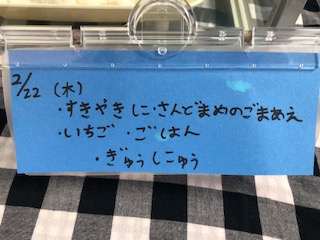 2/22 (水)
・すきやきに・さんどまめのごまあえ
・いちご ・ごはん
・ぎゅうにゅう